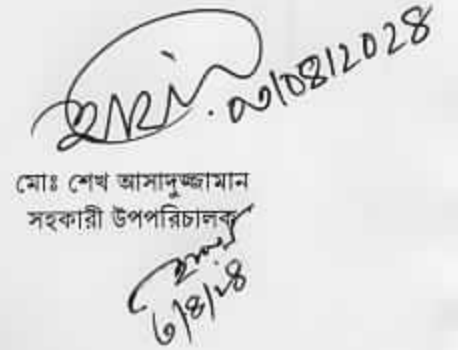 ০৩/০৪/২০২৪
মোঃ শেখ আসাদুজ্জামান
সহকারী উপপরিচালক
৩/৪/২৪